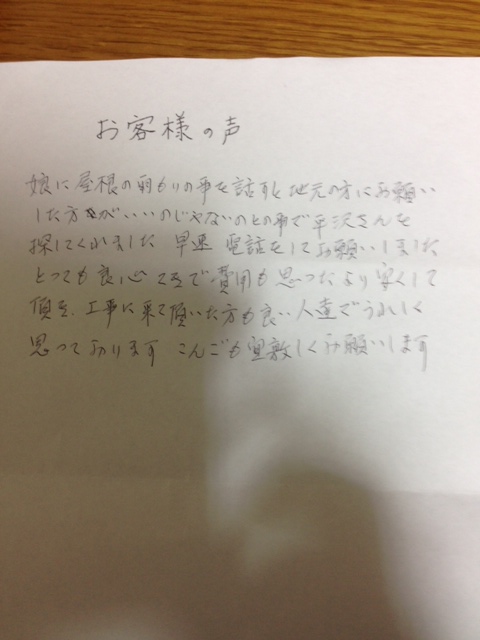 お客様の声
娘に屋根の雨もりの事を話すと地元の方にお願い
した方がいいのじゃないのとの事で平沢さんを
探してくれました 早速 電話をしてお願いしました
とっても良心てきで費用も思ったより安くして
頂き、工事に来て頂いた方も良い人達でうれしく
思っております こんごも宜敷しくお願いします